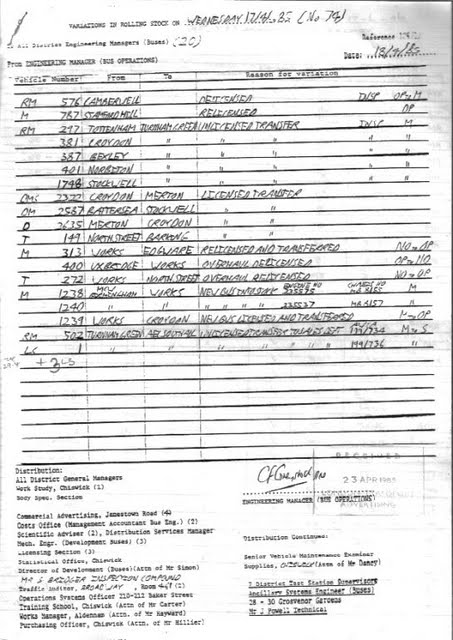 VARIATIONS IN ROLLING STOCK ON WEDNESDAY (No 74)
To All District Engineering Managers (Buses) (20)
Reference
From ENGINEERING MANAGER (BUS OPERATIONS)
Date:
Vehicle Number From To Reason for variation
RM 576 CAMBERWELL DELICENSED INSP OP→M
M 787 STAMFORD HILL RELICENSED OP
RM 217 TOTTENHAM TURNHAM GREEN UNLICENSED TRANSFER INSP M
381 CROYDON " " " " "
387 BEXLEY " " " " "
401 NORBITON " " " " "
1748 STOCKWELL " " " " "
DMS 2322 CROYDON MERTON LICENSED TRANSFER
DM 2587 BATTERSEA STOCKWELL " "
D 2635 MERTON CROYDON " "
T 149 NORTH STREET BARKING " "
M 313 WORKS EDGWARE RELICENSED AND TRANSFERRED NO→OP
400 UXBRIDGE WORKS OVERHAUL DELICENSED OP→NO
T 272 WORKS NORTH STREET OVERHAUL RELICENSED NO→OP
M 1238 MCW BIRMINGHAM WORKS NEW BUS INTO STOCK ENGINE NO CHASSIS NO M
1240 " " " " " 235537 MB 8157 "
1239 WORKS CROYDON NEW BUS LICENSED AND TRANSFERRED M→OP
RM 502 TURNHAM GREEN AEC SOUTHALL 199/734 M→S
LS 1 " " " " " " 199/736 "
Distribution:
All District General Managers
Work Study, Chiswick (1)
Body Spec. Section
RECEIVED
23 APR 1985
ADVERTISING
ENGINEERING MANAGER (BUS OPERATIONS)
Commercial Advertising, Jamestown Road
Costs Office (Management Accountant Bus Eng.) (2)
Scientific Adviser (2), Distribution Services Manager
Mech. Engr. (Development Buses) (3)
Licensing Section (3)
Statistical Office, Chiswick
Director of Development (Buses)(Attn of Mr Simon)
INSPECTION COMPOUND
Traffic Auditor, BROADWAY, Room
Operations Systems Officer 210-211 Baker Street
Training School, Chiswick (Attn of Mr Carter)
Works Manager, Aldenham (Attn. of Mr Hayward)
Purchasing Officer, Chiswick (Attn. of Mr Hillier)
Distribution Continues:
Senior Vehicle Maintenance Examiner
Supplies, CHISWICK (Attn of Mr Dancy)
7 District Test Station Supervisors
Ancillary Systems Engineer (Buses)
28 - 30 Grosvenor Gardens
Mr J Powell Technical